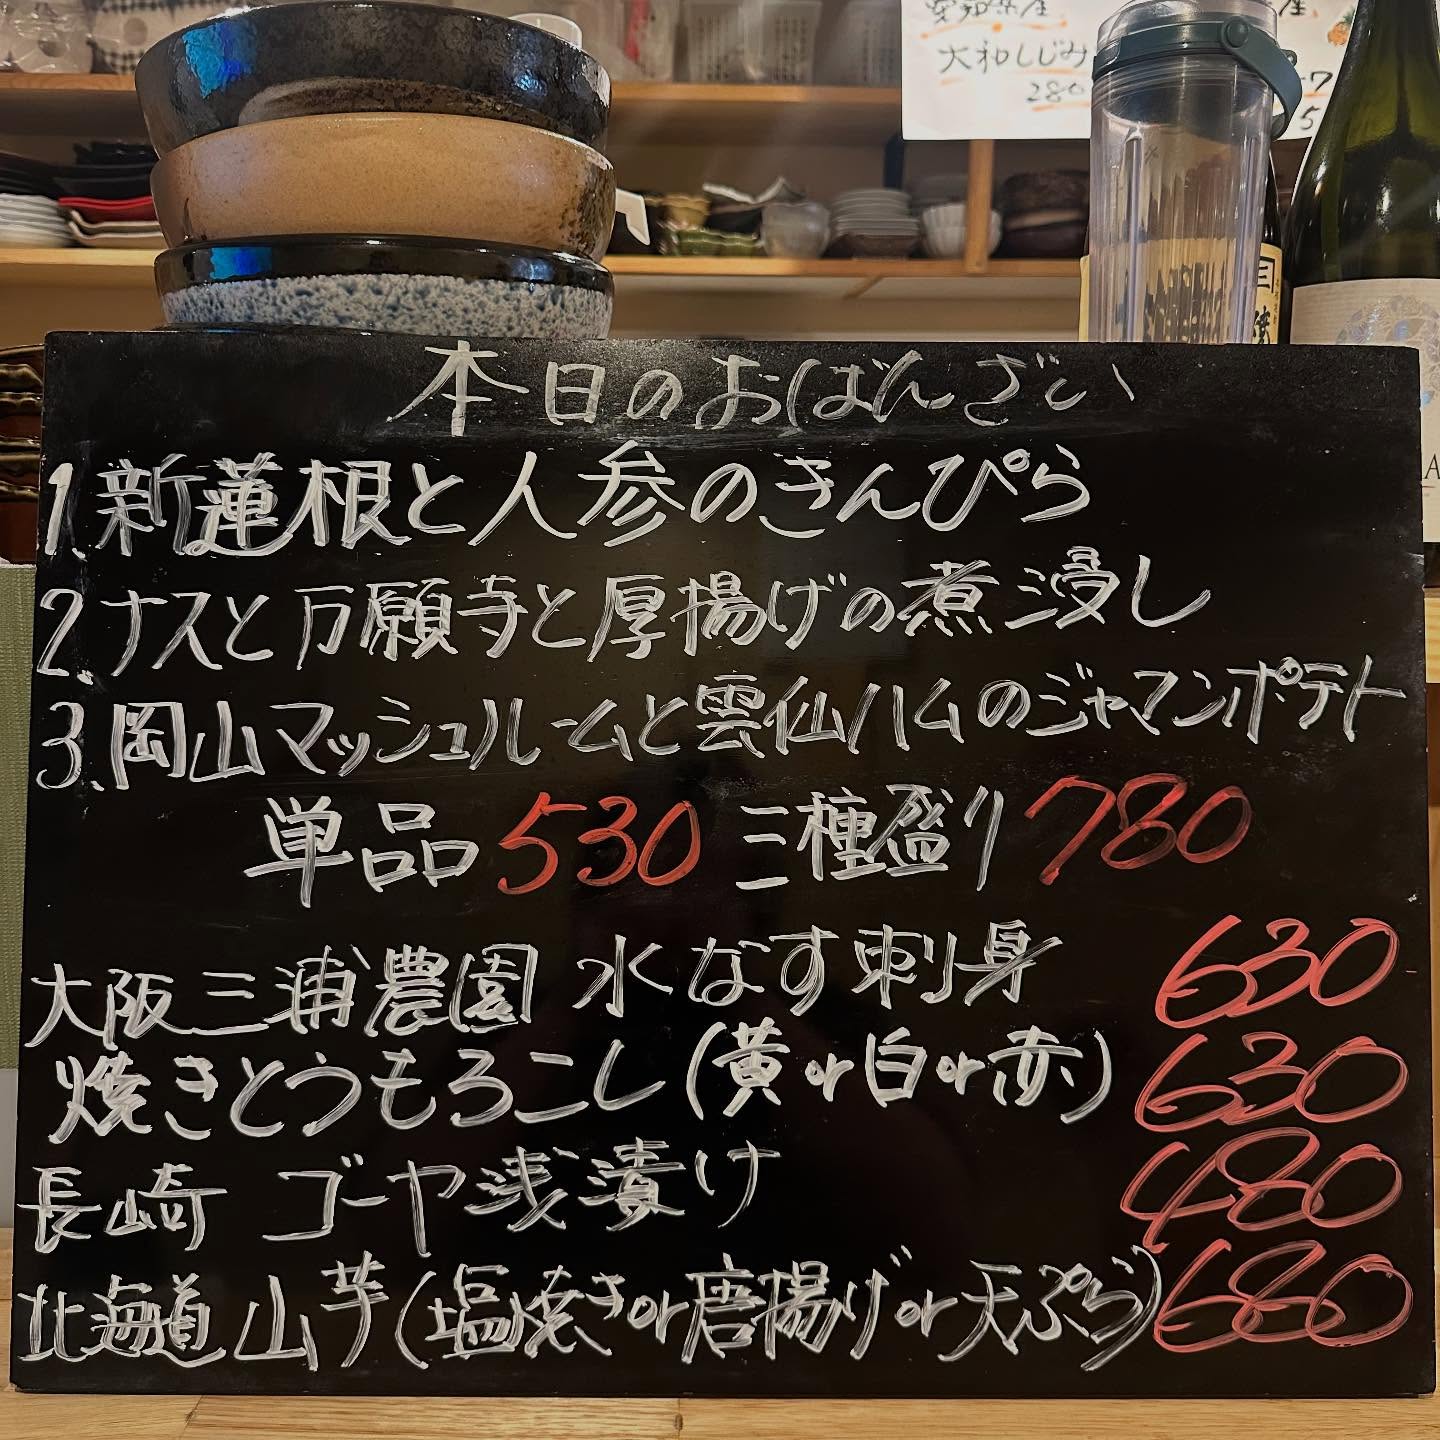 大和しじみ
280
本日のおばんざい
1.新蓮根と人参のきんぴら
2.ナスと万願寺と厚揚げの煮浸し
3.岡山マッシュルームと雲仙ハムのジャーマンポテト
単品530 三種盛り780
大阪三浦農園 水なす刺身 630
焼きとうもろこし(黄or白or赤) 630
長崎 ゴーヤ浅漬け 480
北海道山芋(塩焼きor唐揚げor天ぷら) 680